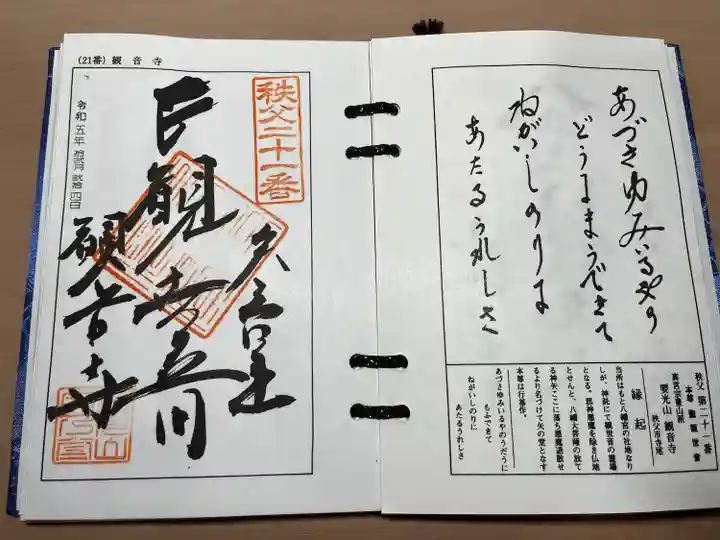 あづさゆみいるやの
どうにまうできて
ねがいしのりに
あたるうれしさ
秩父 第二十一番
真言宗豊山派
本尊 聖観世音
要光山 観音寺
秩父市寺尾
縁起
当所はもと八幡宮の社地なり
しが、神託にて観世音の霊場
となる。邪神悪魔を除き仏地
とせんと、八幡大菩薩の放て
る神矢ここに落ち悪魔過散せ
るより名づけて矢の堂となす
本尊は行基作。
あづさゆみいるやのうだうに
もふできて
ねがいしのりに
あたるうれしさ
(21番) 観音寺
秩父二十一番
令和五年 拾弐月 弐拾四日
矢之堂
正観世音
観音寺